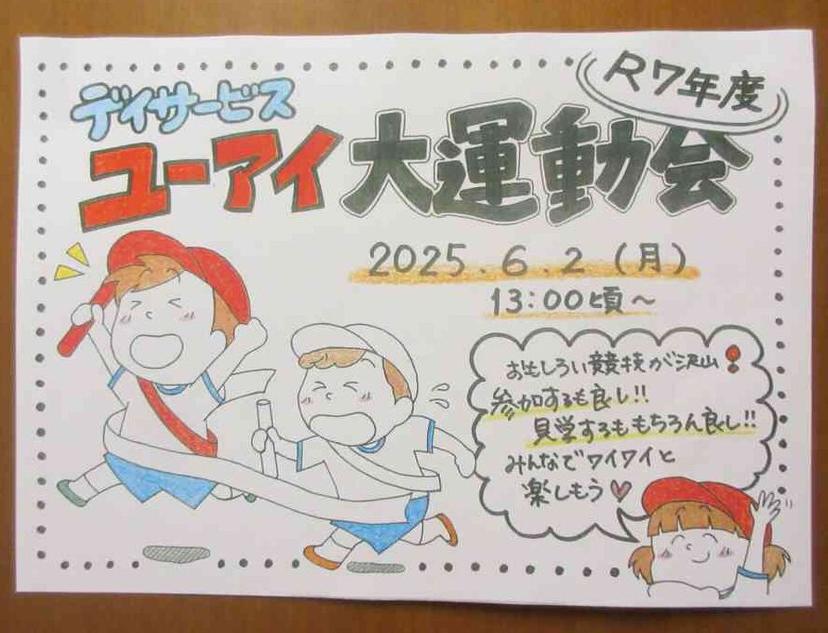 R7年度
デイサービス
ユーアイ大運動会
2025.6.2(月)
13:00頃〜
おもしろい競技が沢山❢
参加するも良し!!
見学するももちろん良し!!
みんなでワイワイと
楽しもう♥